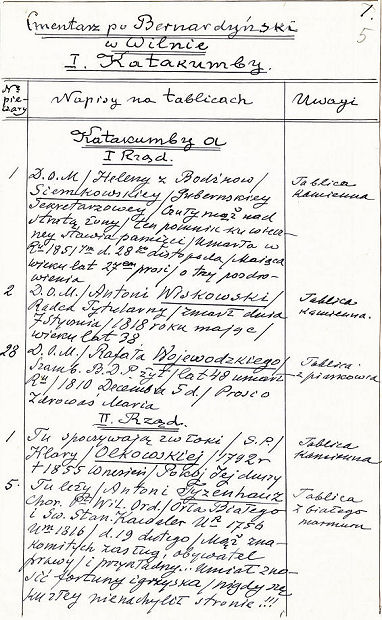 1.
5
Cmentarz po Bernardyński
w Wilnie
I. Katakumby.
Nr pie-czary
Napisy na tablicach
Uwagi
Katakumby a
I Rząd.
1 D.O.M/Heleny z Bodźnow/ Tablica
Siemkowskiey/Gubernskiey kamienna
Sekretarzowey/Czuły mąż nad
stratą żony/ten pomnik ku wiecz
ney stawia pamięci/Umarła w
Ru 1851/ d. 28 listopada/Maiąca
wieku lat 27 prosi/o trzy pozdro-
wienia
2 D.O.M./Antoni Wiskowski/ Tablica
Radca Tytularny/zmarł dnia kamienna.
7 Stycznia/1818 roku mając/
wieku lat 38
28 D.O.M./Rafała Wojewodzkiego/ Tablica
Szamb. B.D.P./lat 48 umarł z piaskowca
Ru/1810 Decembra 5 d./Prosi o
Zdrowaś Maria
II. Rząd.
1 Tu spoczywają zwłoki/S.P./ Tablica
Klary/Olkowskiej/1792 r kamienna
+1855 Wrzesień/Pokój Jej duszy
5 Tu leży/Antoni Tyzenhauz Tablica
Chor. Wil. Ord./Orła Białego z białego
i Sw. Stan. Kawaler Ur. 1756 marmuru
Um 1816/d. 19 lutego/Mąż zna-
komitych zasług, obywatel
prawy/i przykładny... umiał zno-
sić fortuny igrzyska/nigdy się
ku złey nienachylił stronie!!!